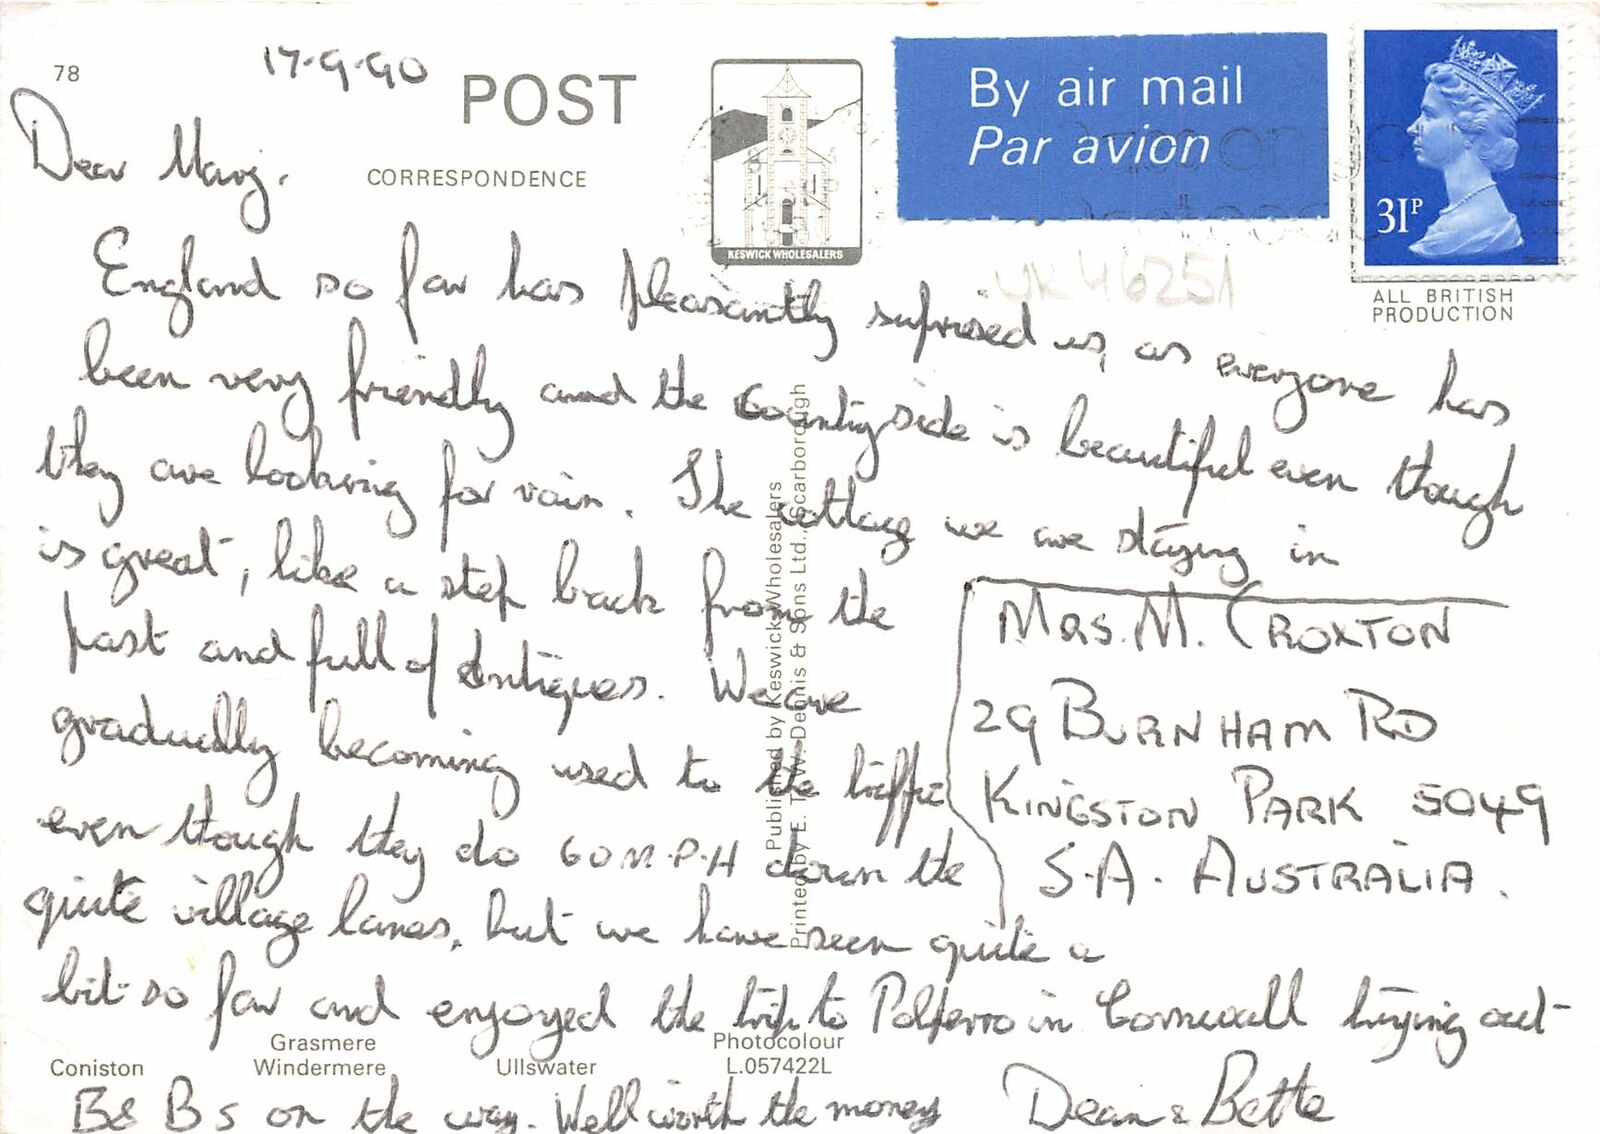 78
17-9-90
POST
CORRESPONDENCE
KESWICK WHOLESALERS
By air mail
Par avion
31P
ALL BRITISH
PRODUCTION
UK 46251
Dear Marg.
England so far has pleasantly suprised us, as everyone has
been very friendly and the Countryside is beautiful even though
they are looking for rain. The cottage we are staying in
is great, like a step back from the
past and full of Antiques. We are
gradually becoming used to the traffic
even though they do 60 M.P.H down the
quite village lanes, but we have seen quite a
bit so far and enjoyed the trip to Polperro in Cornwall trying out
B& Bs on the way. Well worth the money
Dean & Bette
MRS. M. CROXTON
29 BURNHAM RD
KINGSTON PARK 5049
S.A. AUSTRALIA.
Published by Keswick Wholesalers
Printed by E. T. W. Dennis & Sons Ltd., Scarborough
Coniston
Grasmere
Windermere
Ullswater
Photocolour
L.057422L